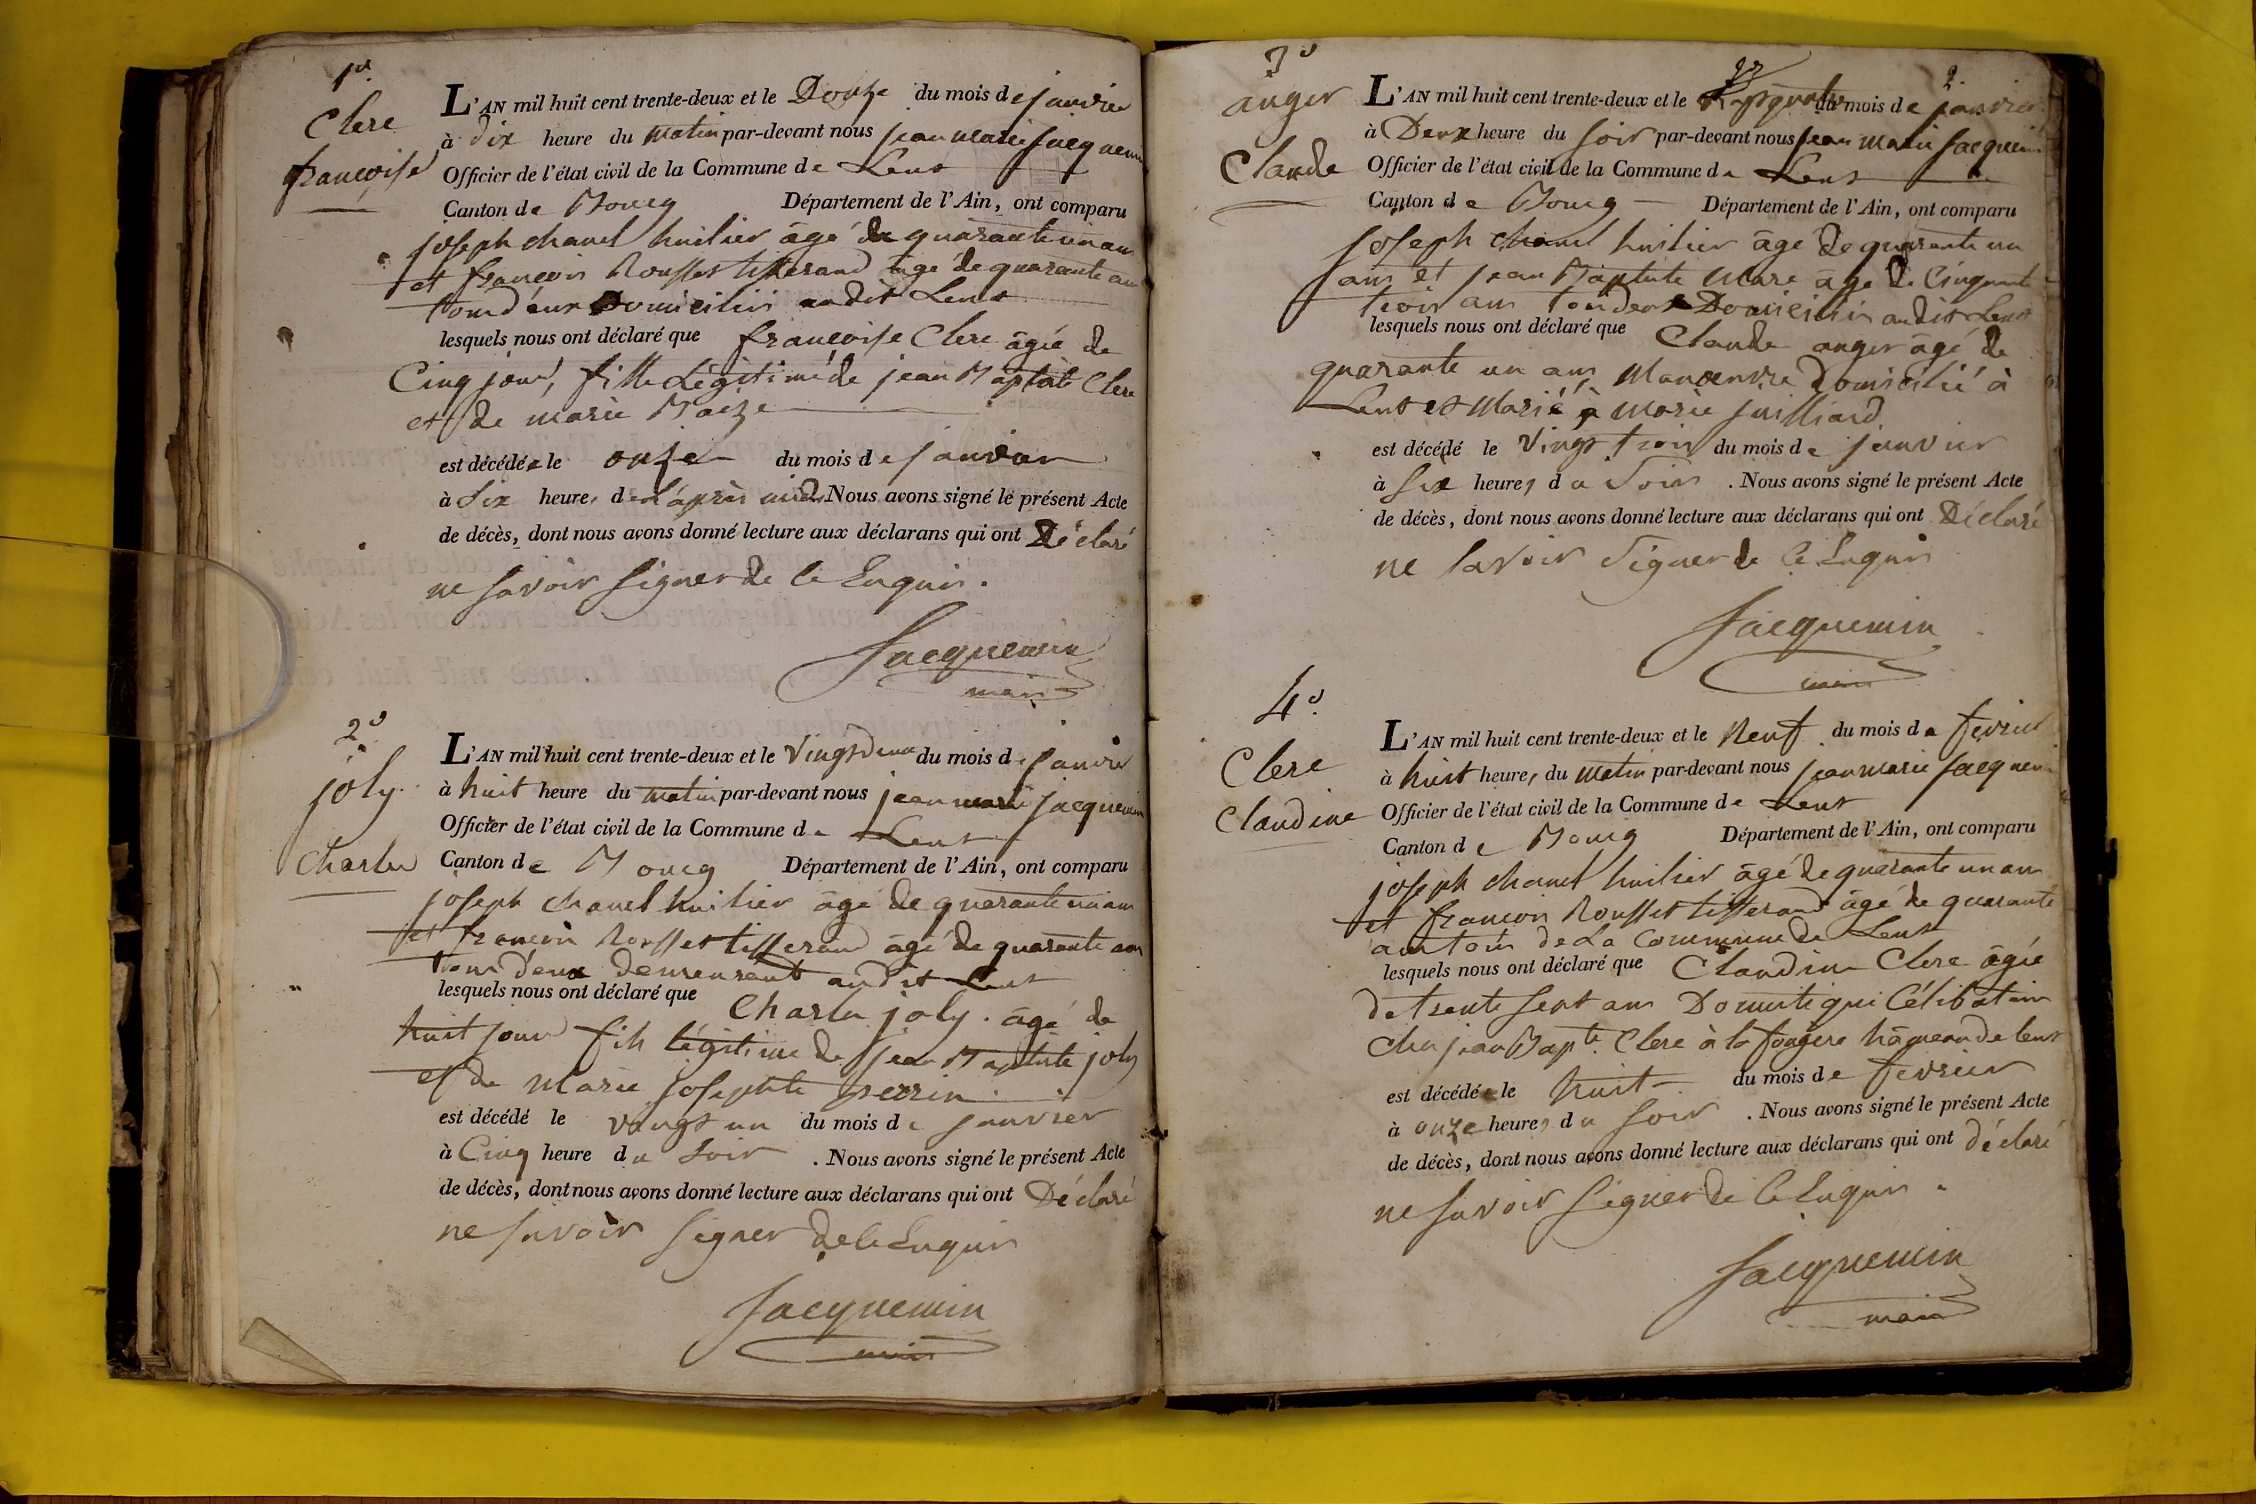 1o.
Clerc
françoise
L'AN mil huit cent trente-deux et le Douze du mois de janvier
à dix heure du matin par-devant nous jean marie jacquemin
Officier de l'état civil de la Commune de Lent
Canton de Bourg Département de l'Ain, ont comparu
joseph chanel huilier âgé de quarante un an
et françois Rousset tisserand âgé de quarante ans
tous d'eux Domiciliés audit Lent
lesquels nous ont déclaré que françoise Clerc âgée de
Cinq jours, fille Légitime de jean Baptiste Clerc
et de marie
est décédée le onze du mois de janvier
à six heure, de l'après midi Nous avons signé le présent Acte
de décès, dont nous avons donné lecture aux déclarans qui ont Déclaré
ne savoir signer de ce Enquis.
Jacquemin
maire
2o
joly.
Charles
L'AN mil huit cent trente-deux et le Vingt deux du mois de janvier
à huit heure du matin par-devant nous jean marie jacquemin
Officier de l'état civil de la Commune de Lent
Canton de Bourg Département de l'Ain, ont comparu
joseph chanel huilier âgé de quarante un an
et françois Rousset tisserand âgé de quarante ans
tous d'eux demeurant audit Lent
lesquels nous ont déclaré que Charles joly. âgé de
huit jours fils légitime de jean Baptiste joly
et de Marie josephte perrin
est décédé le vingt un du mois de janvier
à Cinq heure du soir . Nous avons signé le présent Acte
de décès, dont nous avons donné lecture aux déclarans qui ont Déclaré
ne savoir signer de ce Enquis
Jacquemin
maire
3o
anger
Claude
2.
L'AN mil huit cent trente-deux et le du mois de janvier
à Deux heure du soir par-devant nous jean marie jacquemin
Officier de l'état civil de la Commune de Lent
Canton de Bourg Département de l'Ain, ont comparu
joseph chanel huilier âgé de quarante un
ans et jean Baptiste Mare âgé de Cinquante
trois ans tous deux Domiciliés audit Lent
lesquels nous ont déclaré que Claude anger âgé de
quarante un ans Manoeuvre Domicilié à
Lent et Marié à Marie juilliard
est décédé le Vingt trois du mois de janvier
à six heures du soir . Nous avons signé le présent Acte
de décès, dont nous avons donné lecture aux déclarans qui ont Déclaré
ne savoir signer de ce Enquis
Jacquemin
maire
4o.
Clerc
Claudine
L'AN mil huit cent trente-deux et le Neuf du mois de fevrier
à huit heure, du matin par-devant nous jean marie jacquemin
Officier de l'état civil de la Commune de Lent
Canton de Bourg Département de l'Ain, ont comparu
joseph chanel huilier âgé de quarante un an
et françois Rousset tisserand âgé de quarante
ans tous de La Commune de Lent
lesquels nous ont déclaré que Claudine Clerc âgée
de trente sept ans Domestique Célibataire
chez jean Bapte. Clerc à la fougere hâmeau de lent
est décédée le huit du mois de fevrier
à onze heure, du soir . Nous avons signé le présent Acte
de décès, dont nous avons donné lecture aux déclarans qui ont déclaré
ne savoir signer de ce Enquis.
Jacquemin
maire